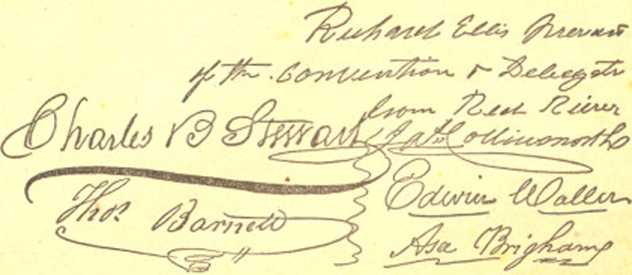 Richard Ellis Presedt
of the Convention & Delegate
from Red River
Charles B Stewart
Jas Collinsworth
Edwin Waller
Thos Barnett
Asa Brigham